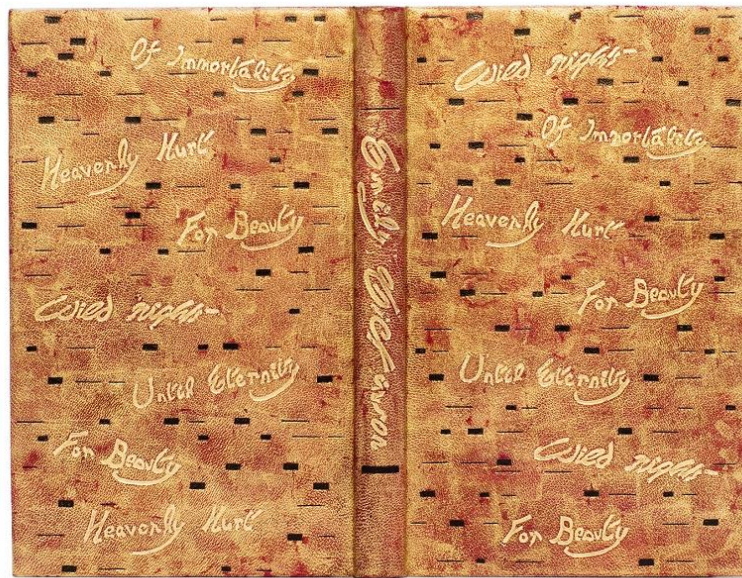 Of Immortality
Heavenly Hurt
For Beauty
Wild night-
Until Eternity
For Beauty
Heavenly Hurt
Emily Dickinson
Wild night-
Of Immortality
Heavenly Hurt
For Beauty
Until Eternity
Wild night-
For Beauty